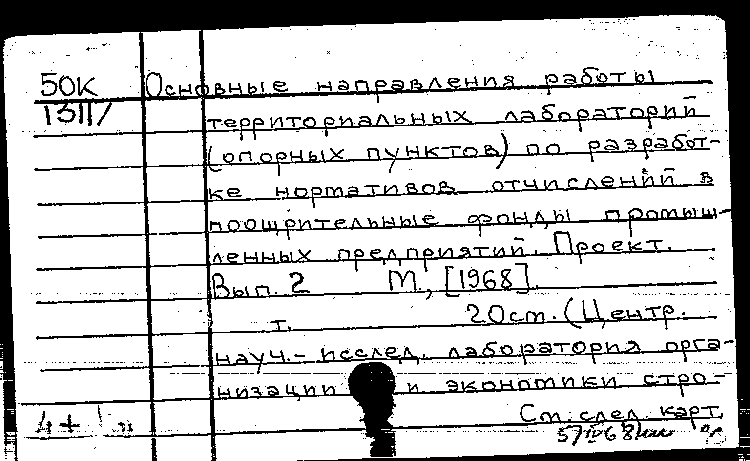 50К Основные направления работы
1311/ территориальных лабораторий
(опорных пунктов) по разработ-
ке нормативов отчислений в
поощрительные фонды промыш-
ленных предприятий. Проект.
Вып. 2 М., [1968].
т. 20ст. (Центр.
науч.-исслед. лаборатория орга-
низации и экономики стро-
Ст. след. карт.